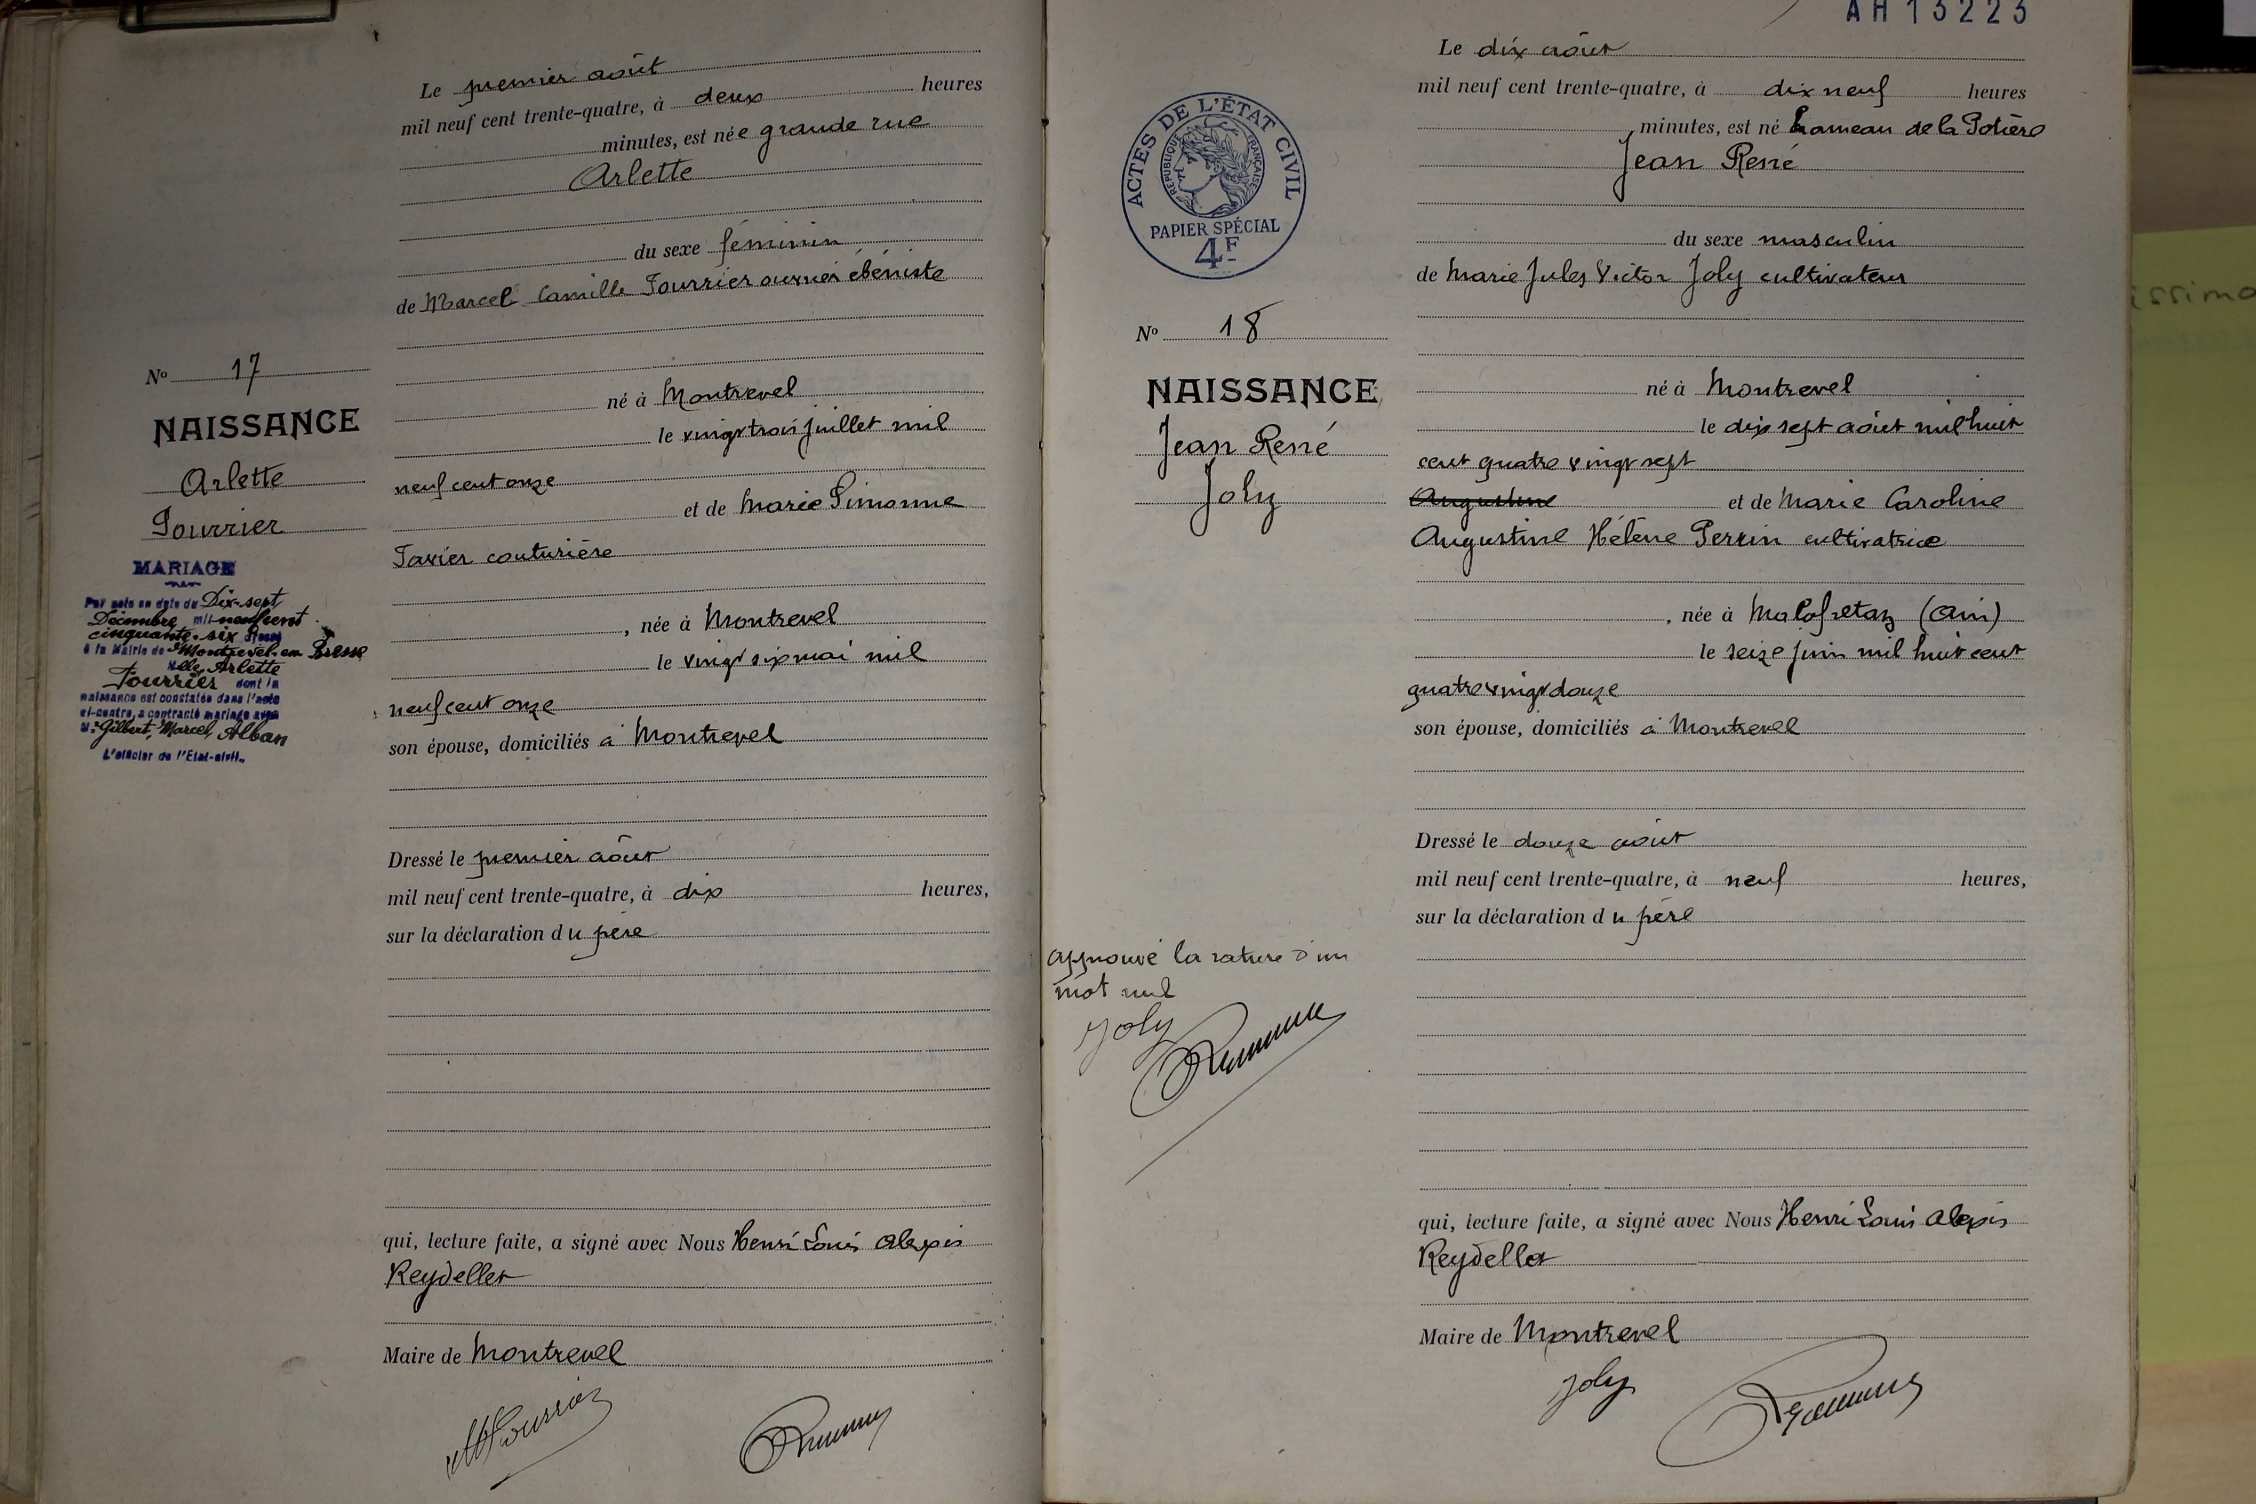 Le premier août
mil neuf cent trente-quatre, à deux heures
minutes, est née grande rue
Arlette
du sexe féminin
de Marcel Camille Fourrier ouvrier ébéniste
né à Montrevel
le vingt trois juillet mil
neuf cent onze
et de Marie Simonne
Favier couturière
, née à Montrevel
le vingt six mai mil
neuf cent onze
son épouse, domiciliés à Montrevel
Dressé le premier août
mil neuf cent trente-quatre, à dix heures,
sur la déclaration du père
qui, lecture faite, a signé avec Nous Henri Louis Alexis
Reydellet
Maire de Montrevel
MFourrier
No 17
NAISSANCE
Arlette
Fourrier
MARIAGE
Par acte en date du Dix-sept
Décembre mil neuf cent
cinquante-six
à la Mairie de Montrevel-en-Bresse
Melle Arlette
Fourrier dont la
naissance est constatée dans l'acte
ci-contre, a contracté mariage avec
Mr Gilbert, Marcel, Alban
L'officier de l'Etat-civil.
AH 13223
ACTES DE L'ÉTAT CIVIL
RÉPUBLIQUE FRANÇAISE
PAPIER SPÉCIAL
4F
No 18
NAISSANCE
Jean René
Joly
approuvé la rature d'un
mot nul
Joly
Le dix août
mil neuf cent trente-quatre, à dix neuf heures
minutes, est né hameau de la Potière
Jean René
du sexe masculin
de Marie Jules Victor Joly cultivateur
né à Montrevel
le dix sept août mil huit
cent quatre vingt sept
Augustine et de Marie Caroline
Augustine Hélène Perrin cultivatrice
, née à Malafretaz (Ain)
le seize juin mil huit cent
quatre vingt douze
son épouse, domiciliés à Montrevel
Dressé le douze août
mil neuf cent trente-quatre, à neuf heures,
sur la déclaration du père
qui, lecture faite, a signé avec Nous Henri Louis Alexis
Reydellet
Maire de Montrevel
Joly